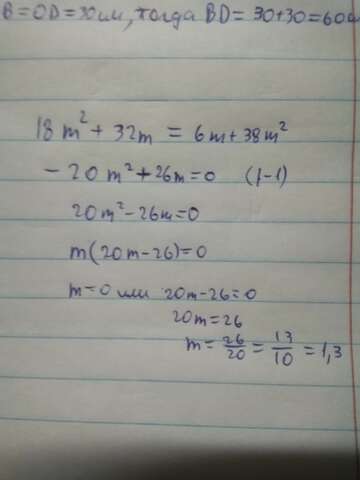 B=OD=30см, тогда BD= 30+30=60
18m²+32m = 6m+38m²
-20m²+26m=0 (|-1)
20m²-26m=0
m(20m-26)=0
m=0 или 20m-26=0
20m=26
m=26/20=13/10=1,3